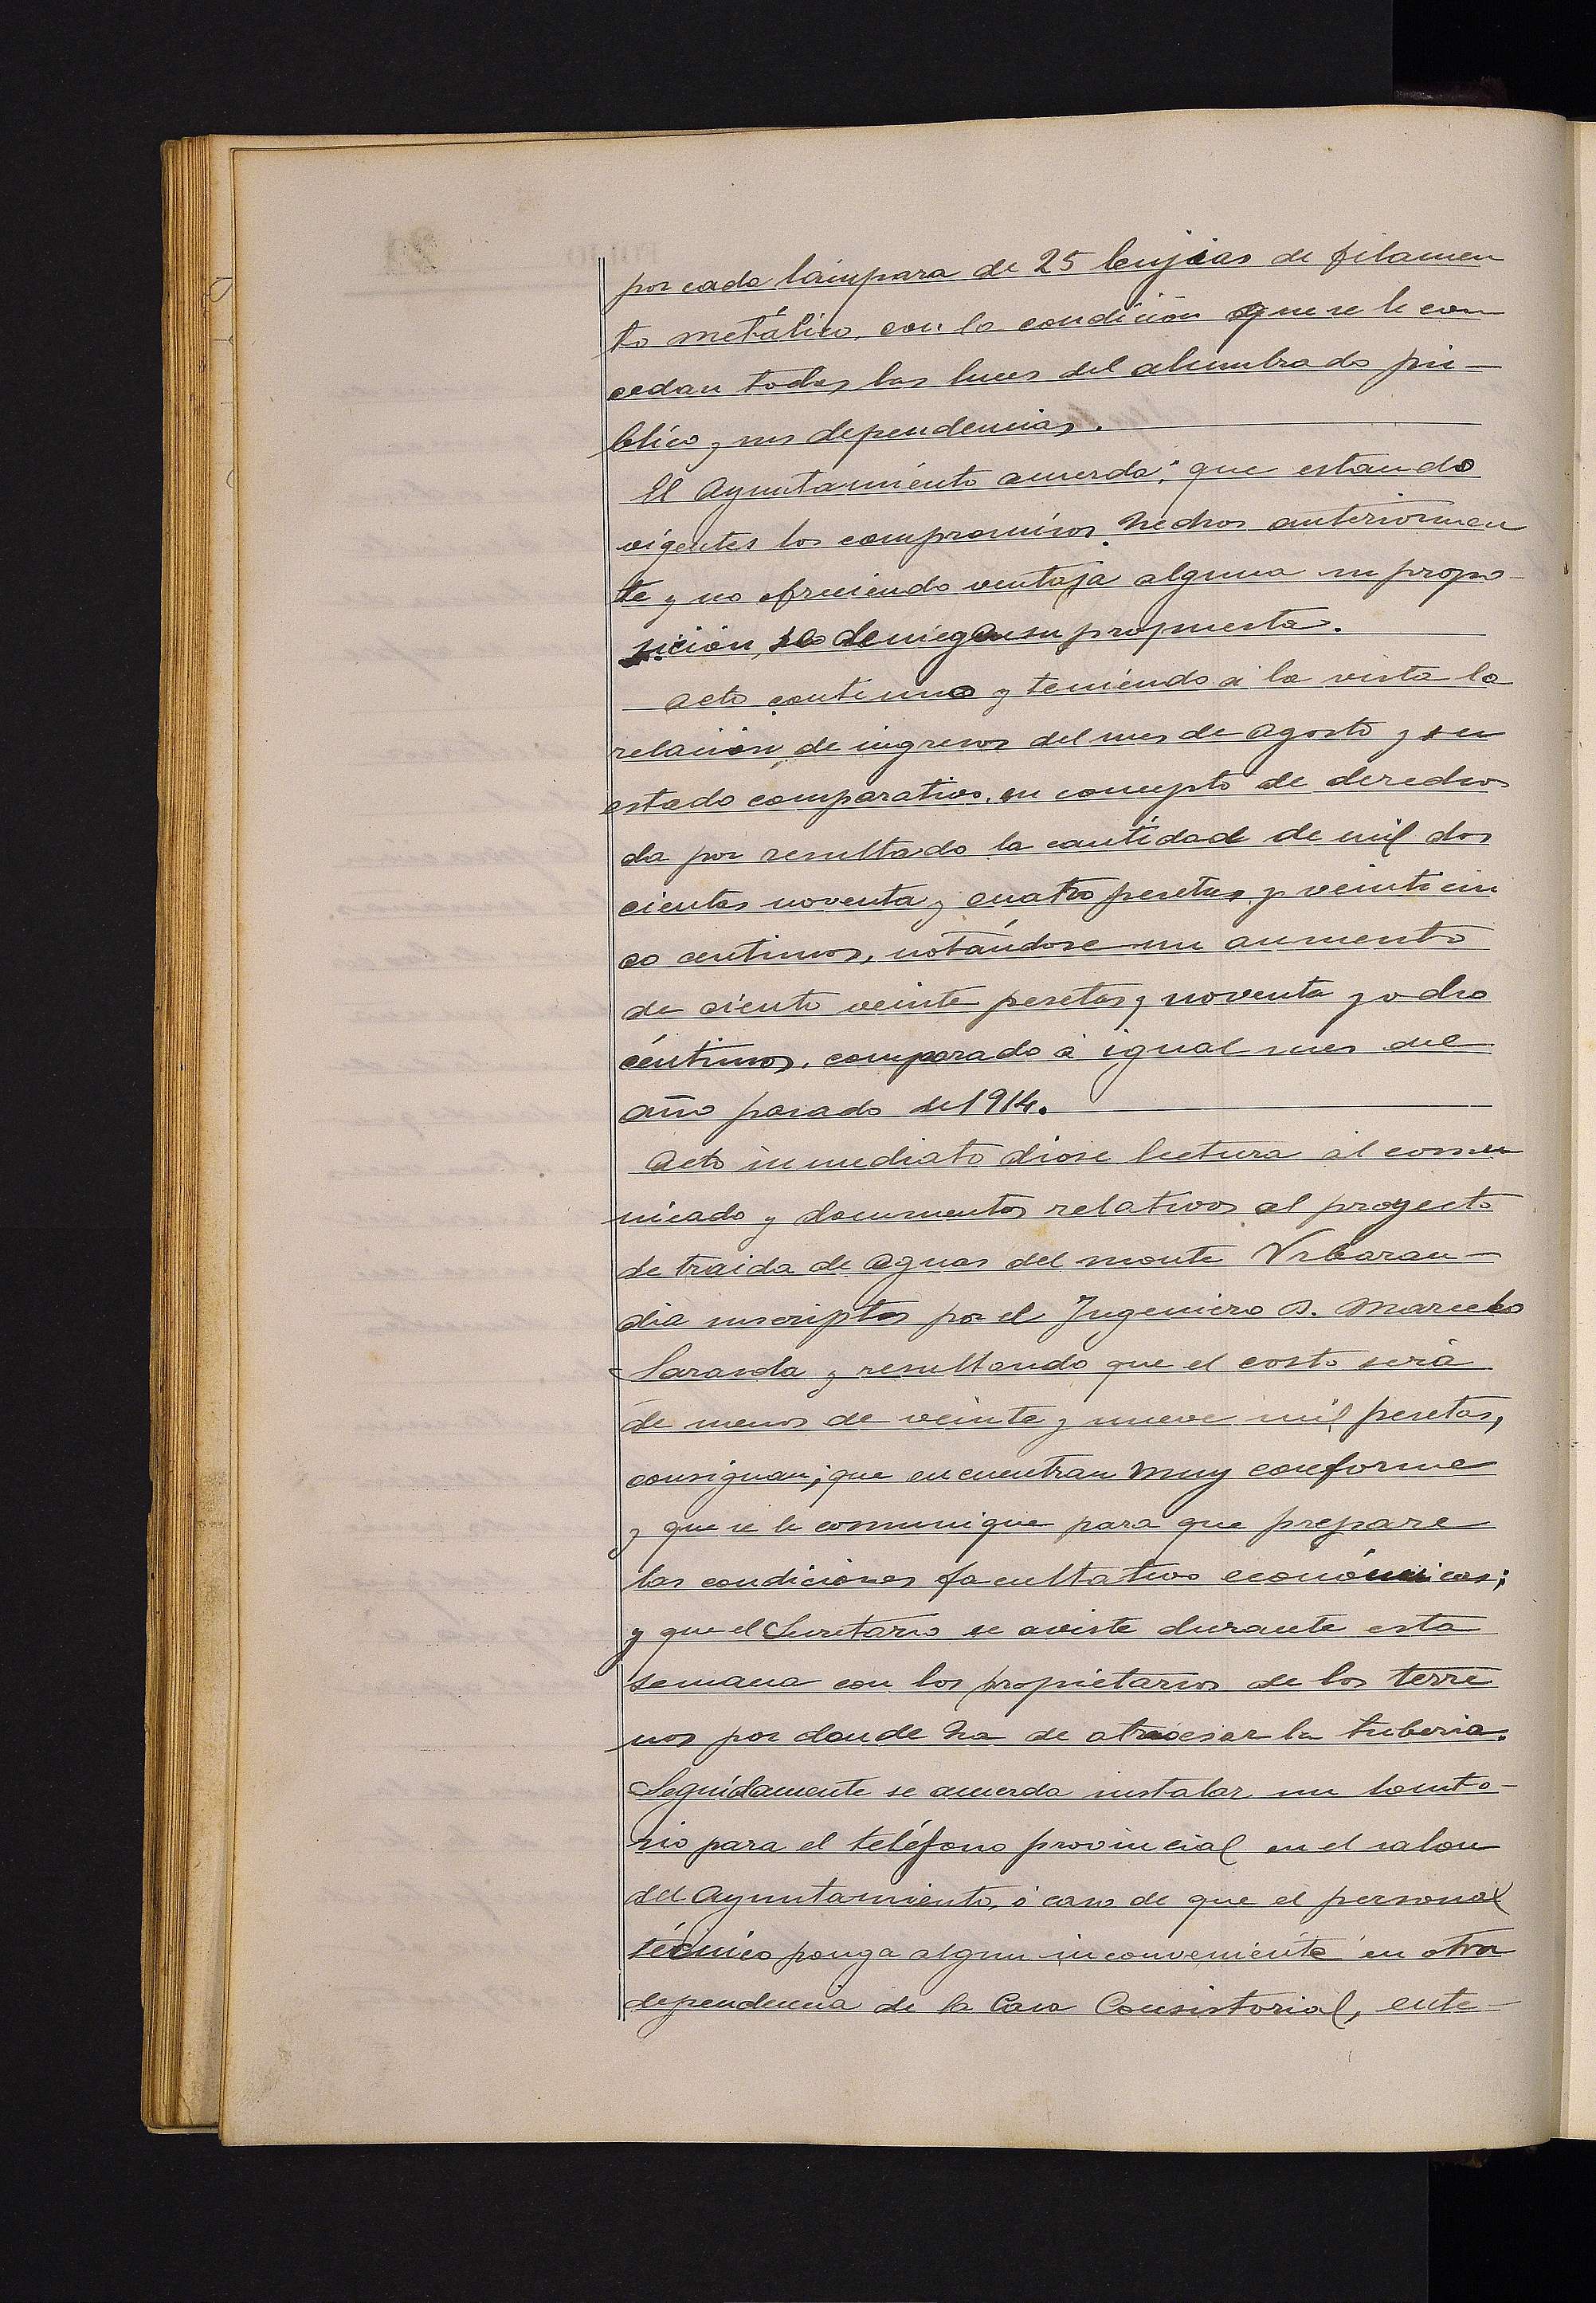 por cada lámpara de 25 bujias de filamen
to metálico, con la condición que se le con
cedan todas las luces del alumbrado pú-
blico y sus dependencias.
El Ayuntamiento acuerda: que estando
vigentes los compromisos hechos anteriormen
te y no ofreciendo ventaja alguna su propo-
sición, se deniega su propuesta.
Acto continuo y teniendo á la vista la
relación de ingresos del mes de Agosto y su
estado comparativo, en concepto de derechos
da por resultado la cantidad de mil dos
cientas noventa y cuatro pesetas y veinticin
co centimos, notándose un aumento
de ciento veinte pesetas y noventa y ocho
céntimos, comparado á igual mes del
año pasado de 1914.
Acto inmediato diose lectura al comu
nicado y documentos relativos al proyecto
de traida de aguas del monte Urbaran-
dia suscriptos por el Ingeniero D. Marcelo
Sarasola y resultando que el costo será
de menos de veinte y nueve mil pesetas,
consignan; que encuentran muy conforme
y que se le comunique para que prepare
las condiciones facultativo económicas;
y que el Secretario se aviste durante esta
semana con los propietarios de los terre
nos por donde ha de atravesar la tuberia.
Seguidamente se acuerda instalar un locuto-
rio para el teléfono provincial en el salon
del Ayuntamiento, ó caso de que el personal
técnico ponga algun inconveniente en otra
dependencia de la Casa Consistorial, ente-